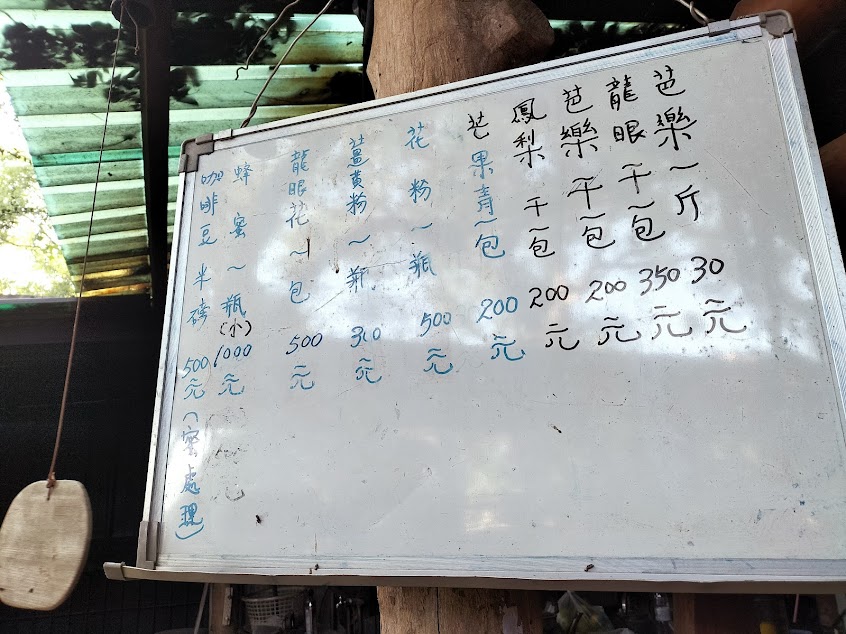 芭樂一斤30元
龍眼干一包350元
芭樂干一包200元
鳳梨干一包200元
芒果青一包200元
花粉一瓶500元
薑黃粉一瓶300元
龍眼花一包500元
蜂蜜一瓶(小)1000元
咖啡豆半磅500元(蜜處理)